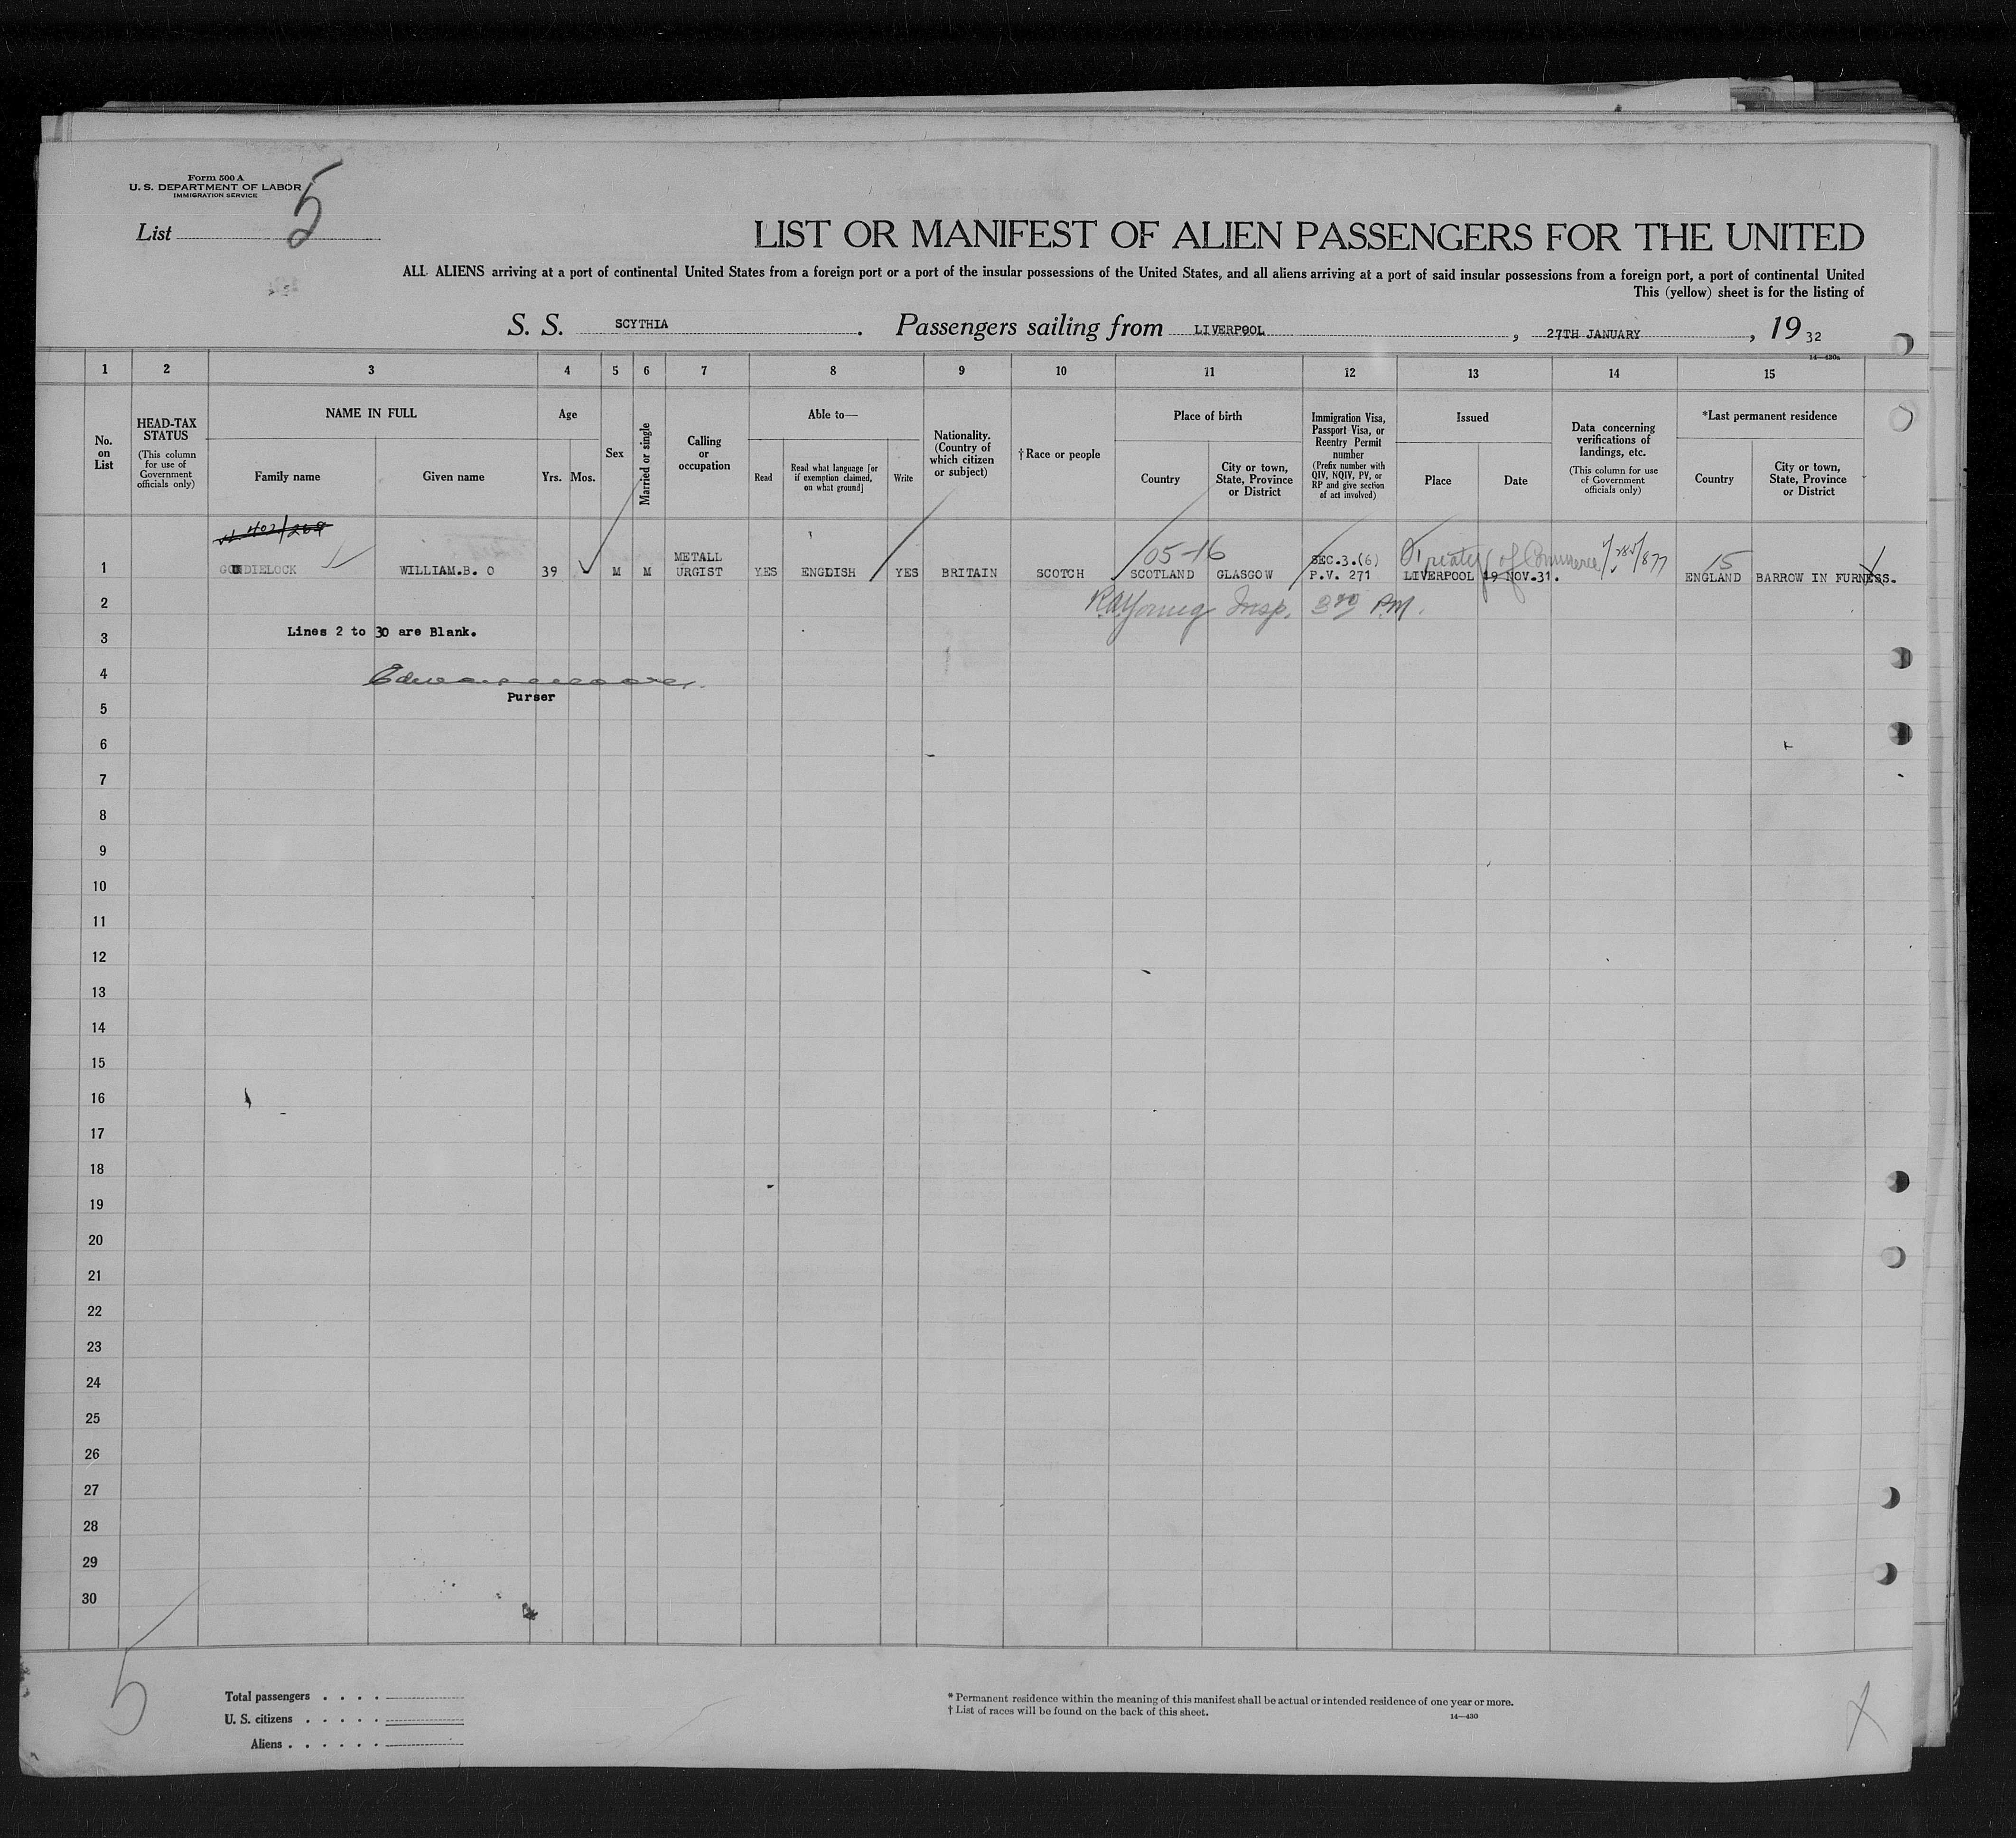 Form 500 A
U. S. DEPARTMENT OF LABOR
IMMIGRATION SERVICE
List 5
LIST OR MANIFEST OF ALIEN PASSENGERS FOR THE UNITED
ALL ALIENS arriving at a port of continental United States from a foreign port or a port of the insular possessions of the United States, and all aliens arriving at a port of said insular possessions from a foreign port, a port of continental United
This (yellow) sheet is for the listing of
S. S. SCYTHIA. Passengers sailing from LIVERPOOL, 27TH JANUARY, 19 32
14—430a
1 2 3 4 5 6 7 8 9 10 11 12 13 14 15
No. on List
HEAD-TAX STATUS
(This column for use of Government officials only)
NAME IN FULL
Family name
Given name
Age
Yrs.
Mos.
Sex
Married or single
Calling or occupation
Able to—
Read
Read what language [or if exemption claimed, on what ground]
Write
Nationality. (Country of which citizen or subject)
†Race or people
Place of birth
Country
City or town, State, Province or District
Immigration Visa, Passport Visa, or Reentry Permit number
(Prefix number with QIV, NQIV, PV, or RP and give section of act involved)
Issued
Place
Date
Data concerning verifications of landings, etc.
(This column for use of Government officials only)
*Last permanent residence
Country
City or town, State, Province or District
05-16
Treaty of Commerce
15
METALL SEC.3.(6)
1 WILLIAM.B. O 39 M M URGIST YES ENGLISH YES BRITAIN SCOTCH SCOTLAND GLASGOW P.V. 271 LIVERPOOL 19 NOV.31. ENGLAND BARROW IN FURNESS.
2 Young Insp. PM.
3 Lines 2 to 30 are Blank.
4
Purser
5
6
7
8
9
10
11
12
13
14
15
16
17
18
19
20
21
22
23
24
25
26
27
28
29
30
5
Total passengers . . . .
U. S. citizens . . . . .
Aliens . . . . . .
* Permanent residence within the meaning of this manifest shall be actual or intended residence of one year or more.
† List of races will be found on the back of this sheet.
14—430